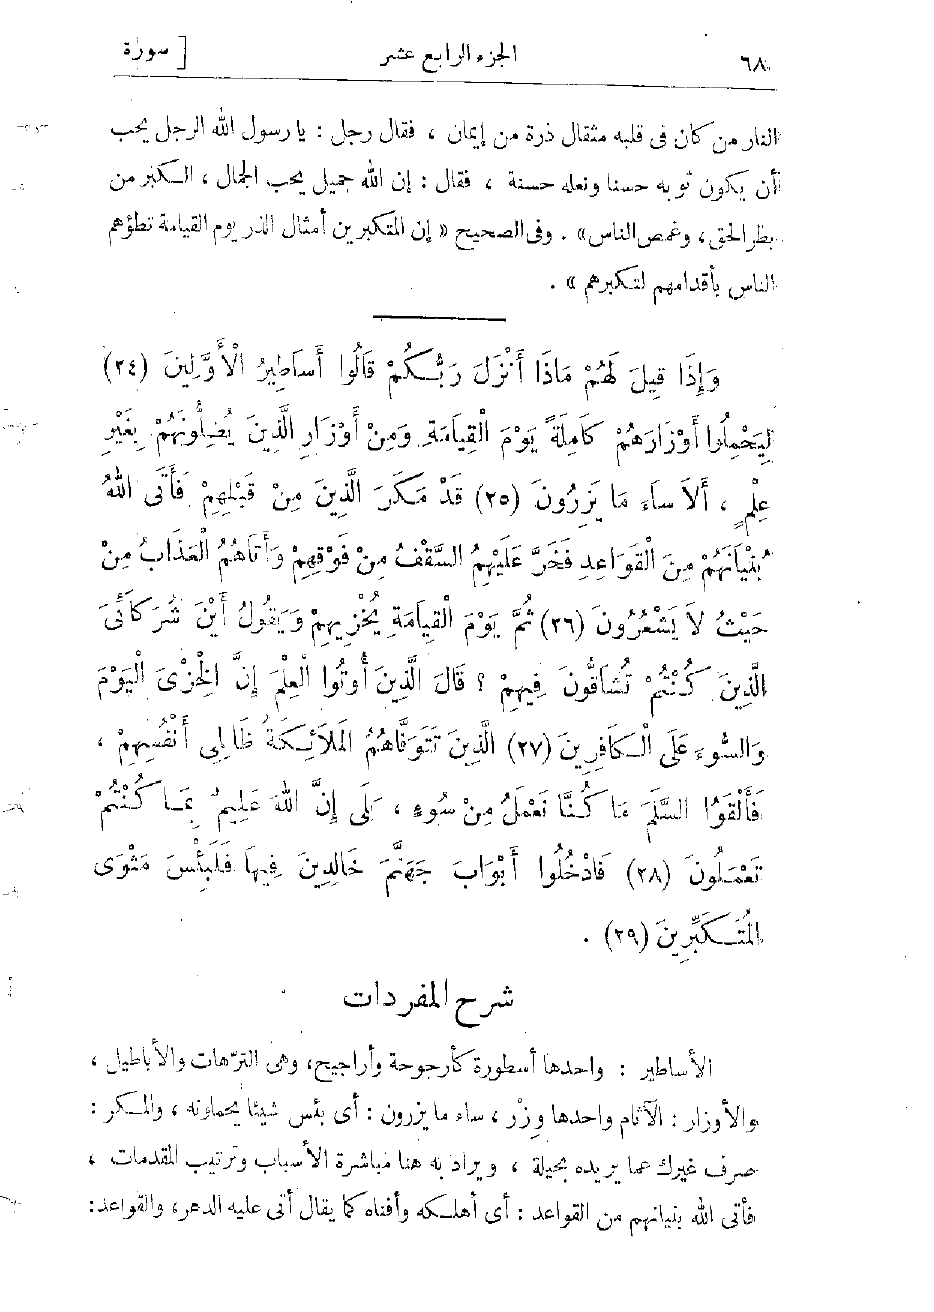 ٦٨ الجزء الرابع عشر [ سورة
النار من كان فى قلبه مثقال ذرة من إيمان ، فقال رجل : يا رسول الله الرجل يحب
أن يكون ثوبه حسنا ونعله حسنة ، فقال : إن الله جميل يحب الجمال ، الكبر من
بطر الحق ، وغمص الناس» . وفى الصحيح « إن المتكبرين أمثال الذر يوم القيامة تطؤهم
الناس بأقدامهم لتكبرهم » .
وَإِذَا قِيلَ لَهُمْ مَاذَا أَنْزَلَ رَبُّكُمْ قَالُوا أَسَاطِيرُ الْأَوَّلِينَ (٢٤)
لِيَحْمِلُوا أَوْزَارَهُمْ كَامِلَةً يَوْمَ الْقِيَامَةِ وَمِنْ أَوْزَارِ الَّذِينَ يُضِلُّونَهُمْ بِغَيْرِ
عِلْمٍ ، أَلَا سَاءَ مَا يَزِرُونَ (٢٥) قَدْ مَكَرَ الَّذِينَ مِنْ قَبْلِهِمْ فَأَتَى اللهُ
بُنْيَانَهُمْ مِنَ الْقَوَاعِدِ فَخَرَّ عَلَيْهِمُ السَّقْفُ مِنْ فَوْقِهِمْ وَأَتَاهُمُ الْعَذَابُ مِنْ
حَيْثُ لَا يَشْعُرُونَ (٢٦) ثُمَّ يَوْمَ الْقِيَامَةِ يُخْزِيهِمْ وَيَقُولُ أَيْنَ شُرَكَائِىَ
الَّذِينَ كُنْتُمْ تُشَاقُّونَ فِيهِمْ ؟ قَالَ الَّذِينَ أُوتُوا الْعِلْمَ إِنَّ الْخِزْىَ الْيَوْمَ
وَالسُّوءَ عَلَى الْكَافِرِينَ (٢٧) الَّذِينَ تَتَوَفَّاهُمُ الْمَلَائِكَةُ ظَالِمِى أَنْفُسِهِمْ ،
فَأَلْقَوُا السَّلَمَ مَا كُنَّا نَعْمَلُ مِنْ سُوءٍ ، بَلَى إِنَّ اللهَ عَلِيمٌ بِمَا كُنْتُمْ
تَعْمَلُونَ (٢٨) فَادْخُلُوا أَبْوَابَ جَهَنَّمَ خَالِدِينَ فِيهَا فَلَبِئْسَ مَثْوَى
الْمُتَكَبِّرِينَ (٢٩) .
شرح المفردات
الأساطير : واحدها أسطورة كأرجوحة وأراجيح، وهى الترّهات والأباطيل ،
والأوزار : الآثام واحدها وِزْر ، ساء ما يزرون : أى بئس شيئا يحملونه ، والمكر :
صرف غيرك عما يريده بحيلة ، ويراد به هنا مباشرة الأسباب وترتيب المقدمات ،
فأتى الله بنيانهم من القواعد : أى أهلكه وأفناه كما يقال أتى عليه الدهر، والقواعد: